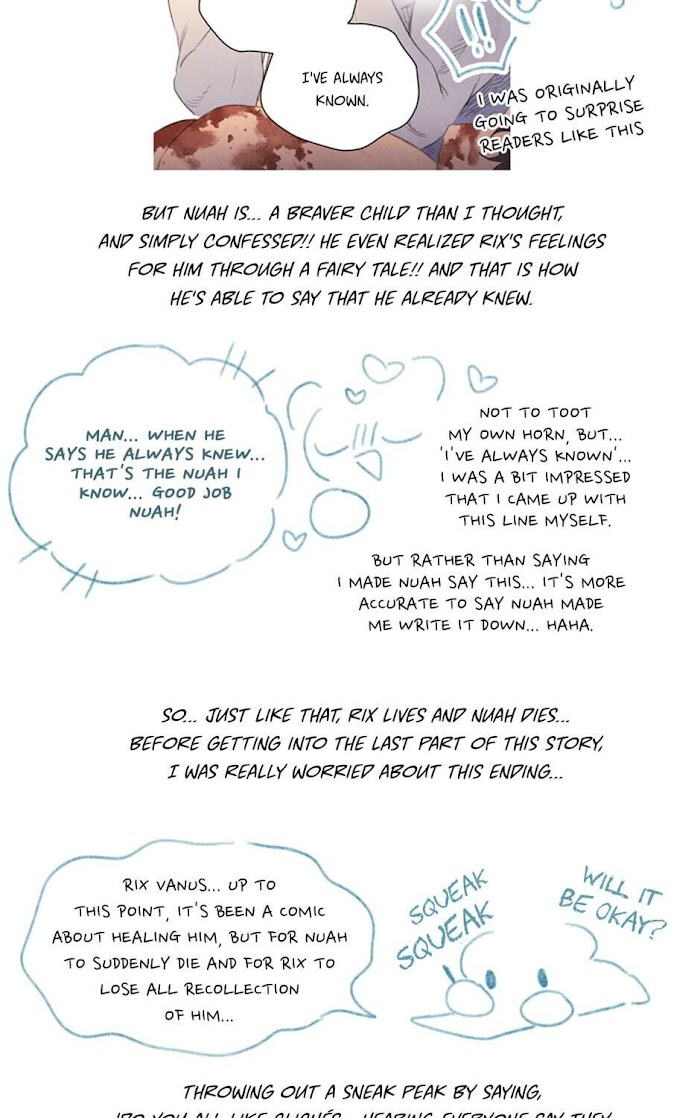 !!
I'VE ALWAYS
KNOWN.
I WAS ORIGINALLY
GOING TO SURPRISE
READERS LIKE THIS
BUT NUAH IS... A BRAVER CHILD THAN I THOUGHT,
AND SIMPLY CONFESSED!! HE EVEN REALIZED RIX'S FEELINGS
FOR HIM THROUGH A FAIRY TALE!! AND THAT IS HOW
HE'S ABLE TO SAY THAT HE ALREADY KNEW.
MAN... WHEN HE
SAYS HE ALWAYS KNEW...
THAT'S THE NUAH I
KNOW... GOOD JOB
NUAH!
NOT TO TOOT
MY OWN HORN, BUT...
'I'VE ALWAYS KNOWN'...
I WAS A BIT IMPRESSED
THAT I CAME UP WITH
THIS LINE MYSELF.
BUT RATHER THAN SAYING
I MADE NUAH SAY THIS... IT'S MORE
ACCURATE TO SAY NUAH MADE
ME WRITE IT DOWN... HAHA.
SO... JUST LIKE THAT, RIX LIVES AND NUAH DIES...
BEFORE GETTING INTO THE LAST PART OF THIS STORY,
I WAS REALLY WORRIED ABOUT THIS ENDING...
RIX VANUS... UP TO
THIS POINT, IT'S BEEN A COMIC
ABOUT HEALING HIM, BUT FOR NUAH
TO SUDDENLY DIE AND FOR RIX TO
LOSE ALL RECOLLECTION
OF HIM...
SQUEAK
SQUEAK
WILL IT
BE OKAY?
THROWING OUT A SNEAK PEAK BY SAYING,
'DO YOU ALL LIKE CLICHÉS... HEARING EVERYONE SAY THEY